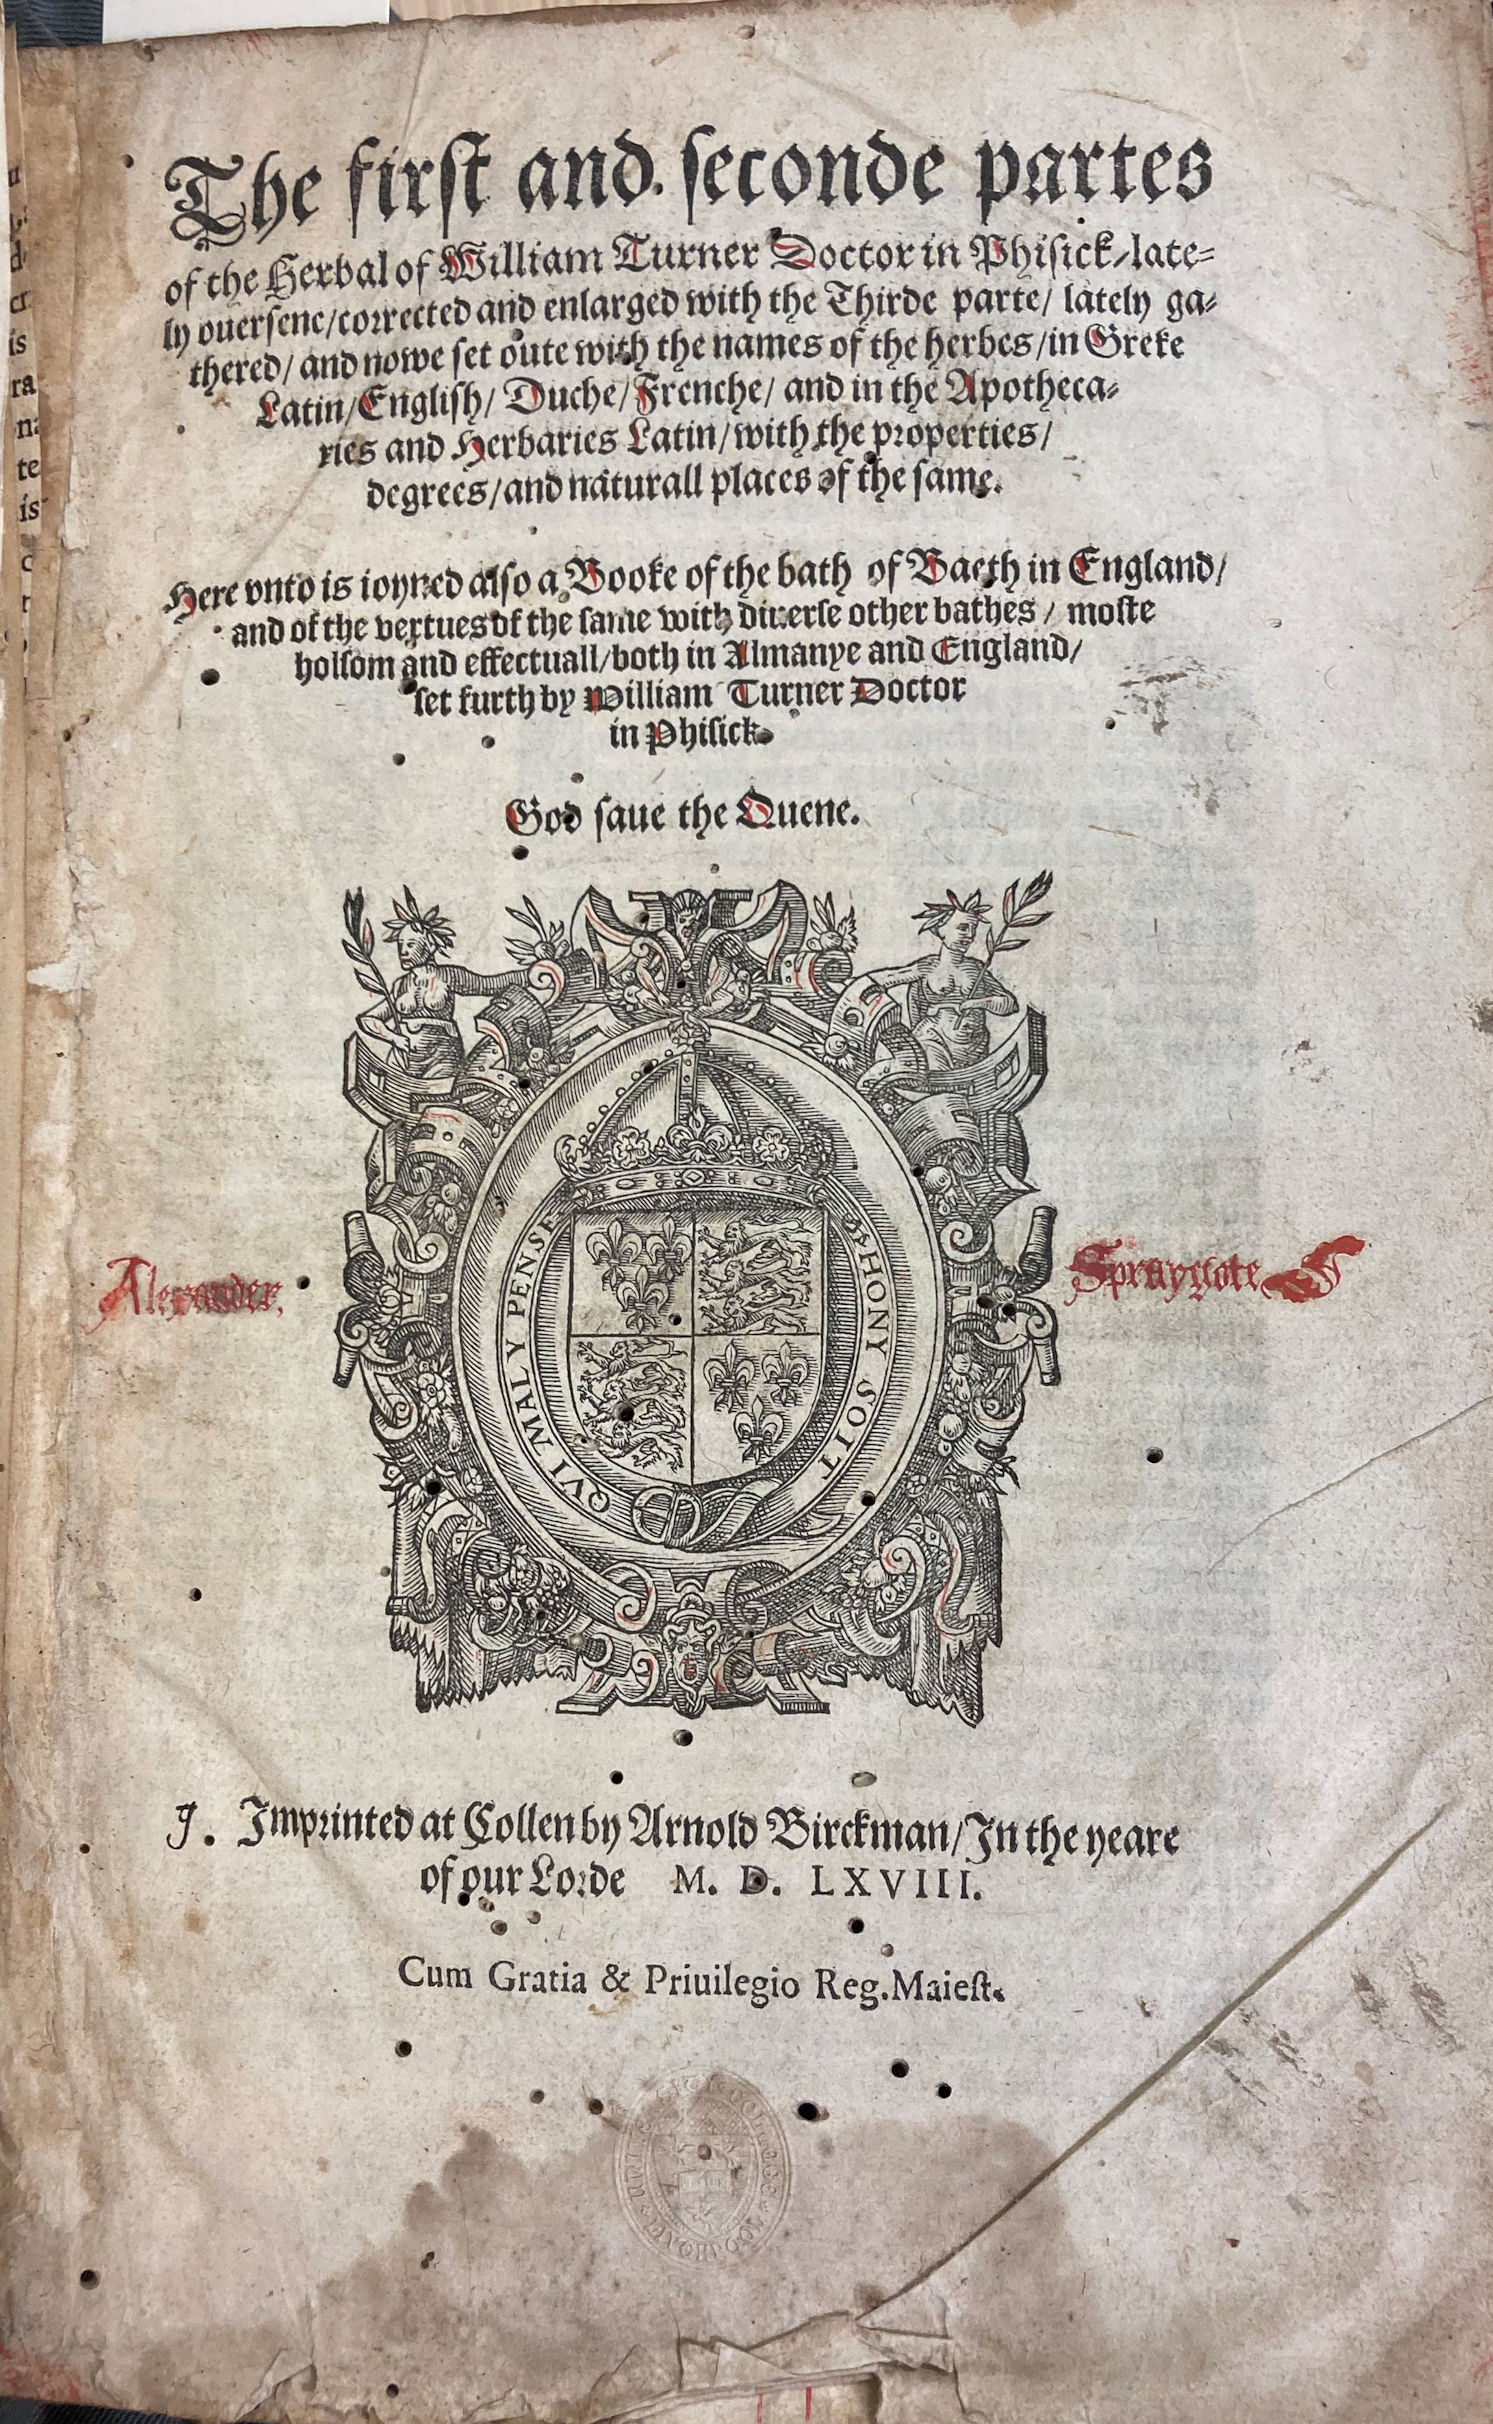 The first and seconde partes
of the Herbal of William Turner Doctor in Phisick / late⸗
ly ouersene / corrected and enlarged with the Thirde parte / lately ga⸗
thered / and nowe set oute with the names of the herbes / in Greke
Latin / English / Duche / Frenche / and in the Apotheca⸗
ries and Herbaries Latin / with the properties /
degrees / and naturall places of the same.
Here vnto is ioyned also a Booke of the bath of Baeth in England /
and of the vertues of the same with diuerse other bathes / moste
holsom and effectuall / both in Almanye and England /
set furth by William Turner Doctor
in Phisick.
God saue the Quene.
HONY SOIT QVI MAL Y PENSE
Alexander.
Spraygote
Imprinted at Collen by Arnold Birckman / In the yeare
of our Lorde M. D. LXVIII.
Cum Gratia & Priuilegio Reg. Maiest.